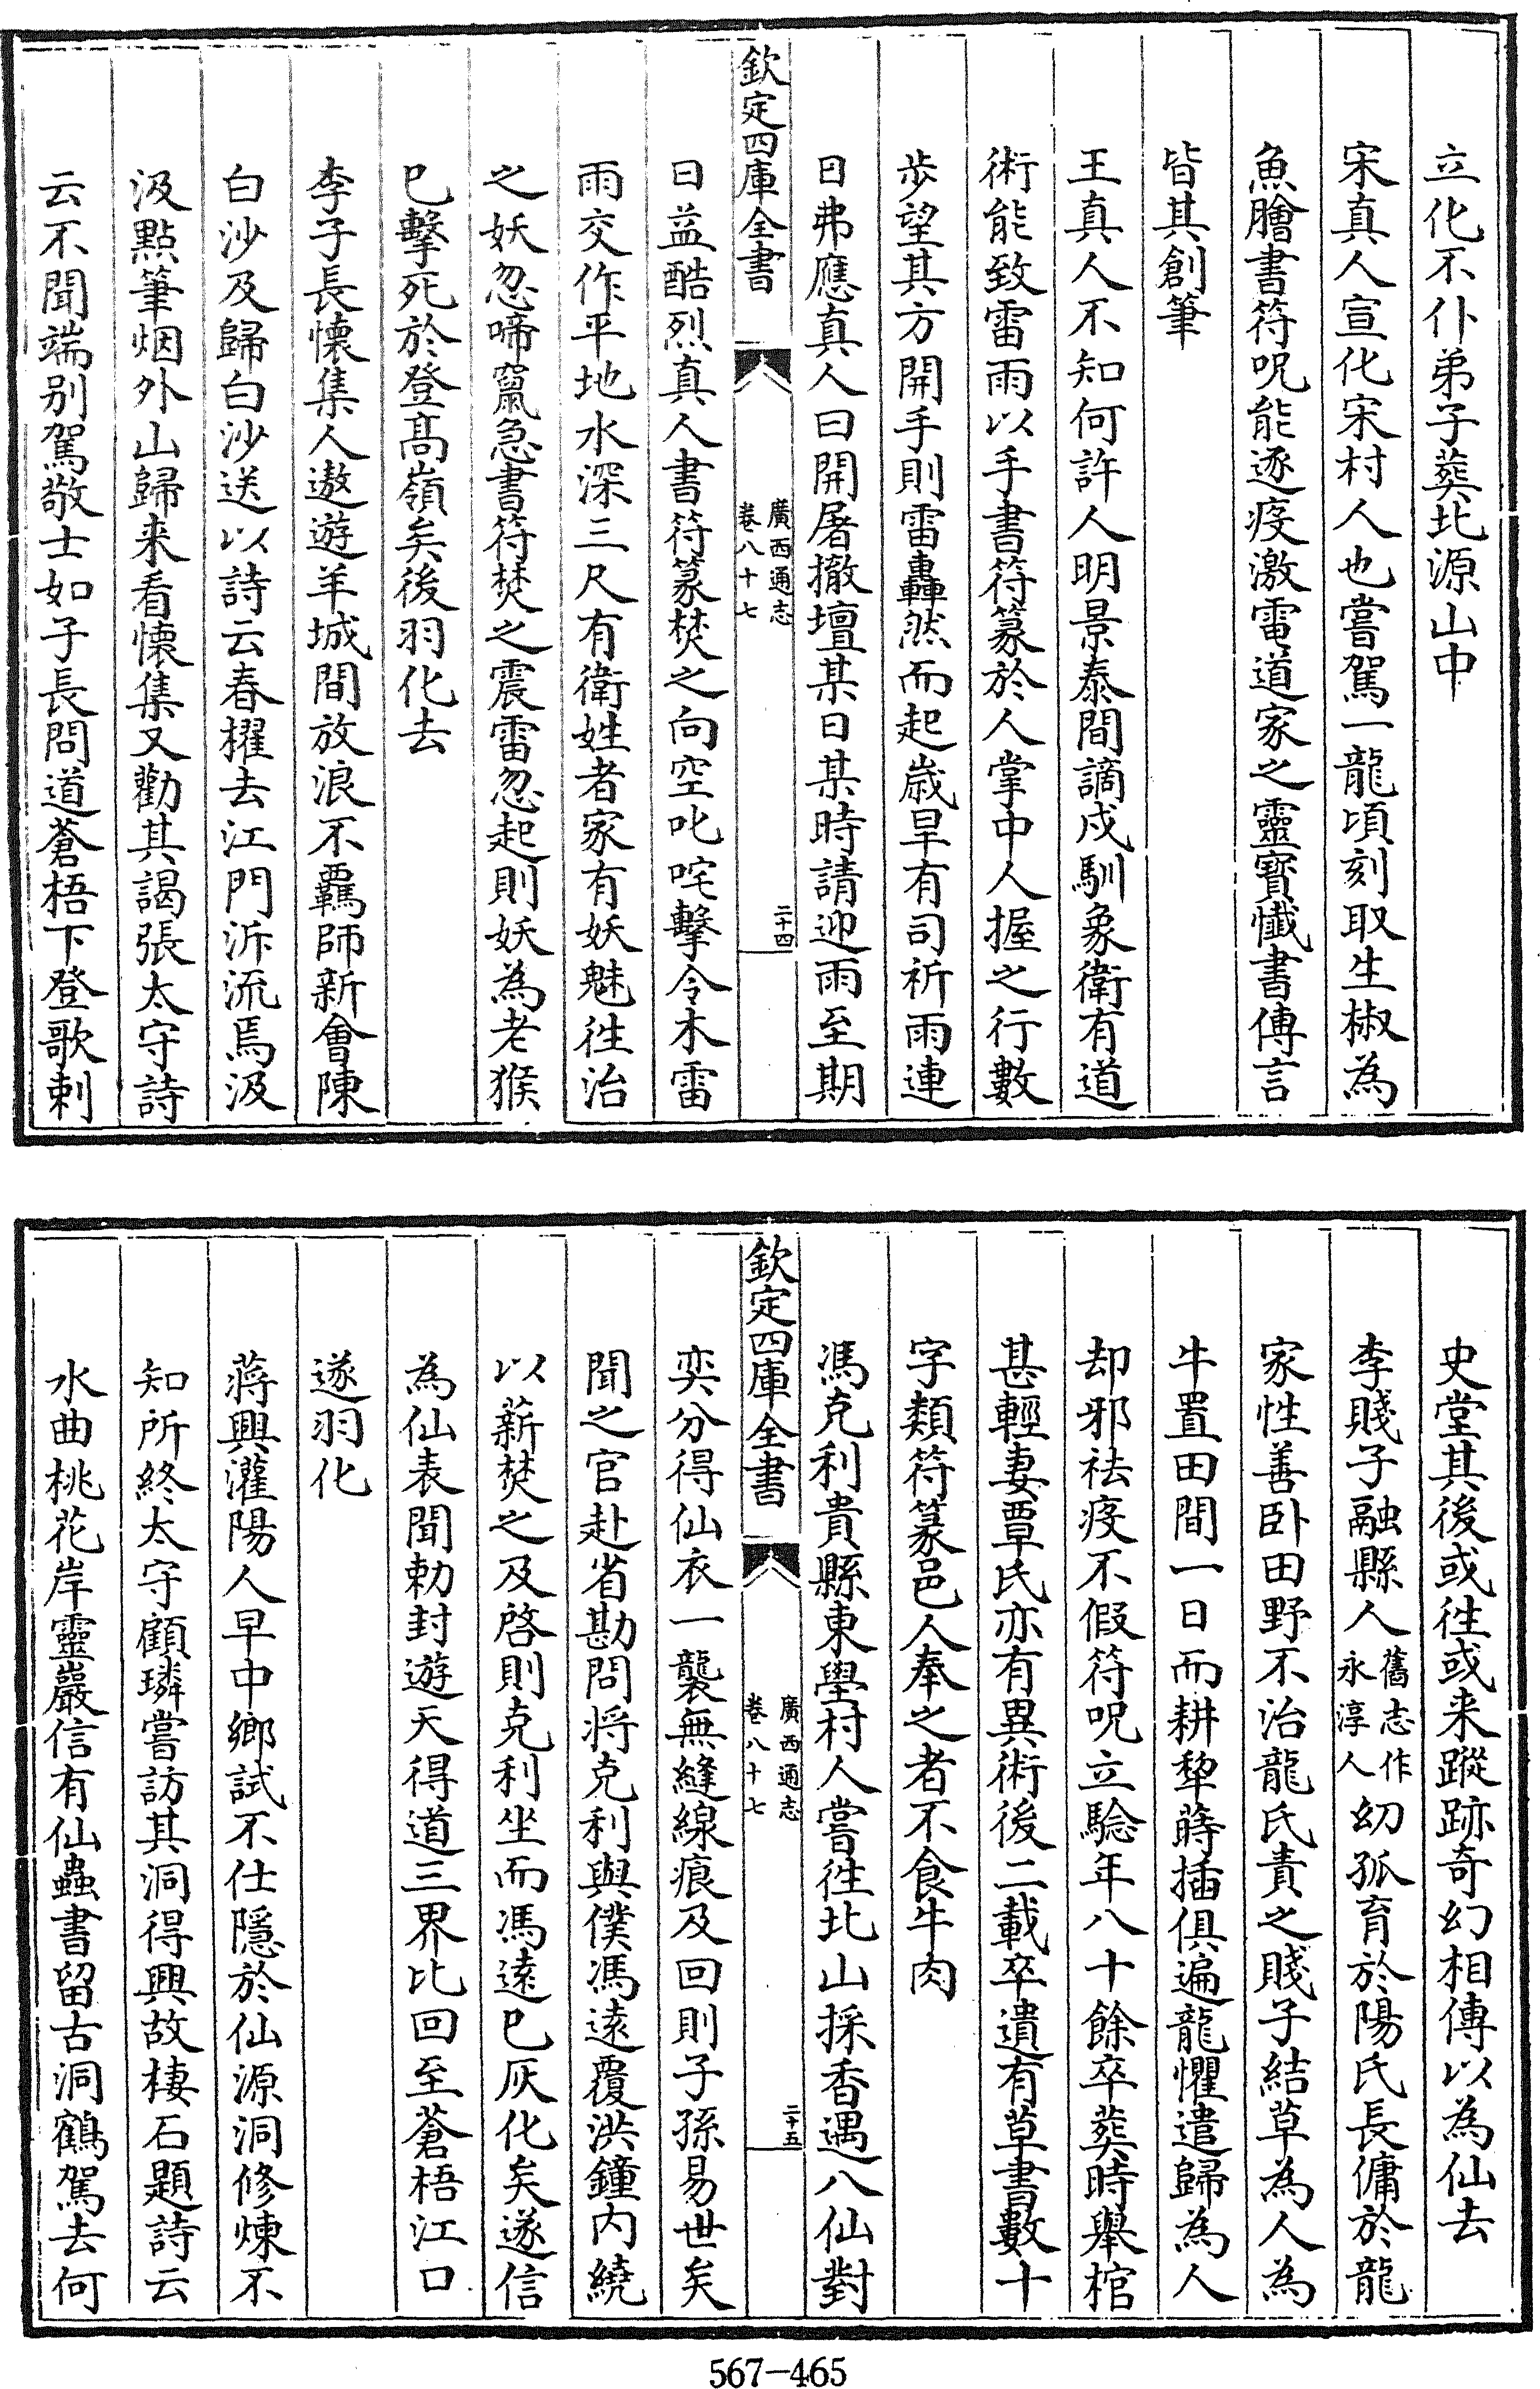 立化不仆弟子葬北源山中
宋真人宣化宋村人也嘗駕一龍頃刻取生椒為
魚膾書符呪能逐疫激電道家之靈寳懺書傅言
皆其創筆
王真人不知何許人明景泰間謫戍馴象衛有道
術能致雷雨以手書符篆於人掌中人握之行數
步望其方開手則雷轟然而起嵗旱有司祈雨連
日弗應真人曰開屠撤壇某日某時請迎雨至期
欽定四庫全書
廣西通志
卷八十七
二十四
日益酷烈真人書符篆焚之向空叱咤擊令木雷
雨交作平地水深三尺有衛姓者家有妖魅徃治
之妖忽啼竄急書符焚之震雷忽起則妖為老猴
巳擊死於登髙嶺矣後羽化去
李子長懐集人遨遊羊城間放浪不覊師新會陳
白沙及歸白沙送以詩云春櫂去江門泝流焉汲
汲點筆烟外山歸来看懐集又勸其謁張太守詩
云不聞端别駕敬士如子長問道蒼梧下登歌刺
史堂其後或徃或来蹤跡奇幻相傳以為仙去
李賤子融縣人
舊志作
永淳人
幼孤育於陽氏長傭於龍
家性善卧田野不治龍氏責之賤子結草為人為
牛置田間一日而耕犂蒔插俱遍龍懼遣歸為人
却邪祛疫不假符呪立騐年八十餘卒葬時舉棺
甚輕妻覃氏亦有異術後二載卒遺有草書數十
字類符篆邑人奉之者不食牛肉
馮克利貴縣東壆村人嘗徃北山採香遇八仙對
欽定四庫全書
廣西通志
卷八十七
二十五
奕分得仙衣一襲無縫線痕及回則子孫易世矣
聞之官赴省勘問将克利與僕馮逺覆洪鐘内繞
以薪焚之及啓則克利坐而馮逺巳灰化矣遂信
為仙表聞勅封遊天得道三界比回至蒼梧江口
遂羽化
蔣興灌陽人早中鄉試不仕隱於仙源洞修煉不
知所終太守顧璘嘗訪其洞得興故棲石題詩云
水曲桃花岸靈巖信有仙蟲書留古洞鶴駕去何
567-465